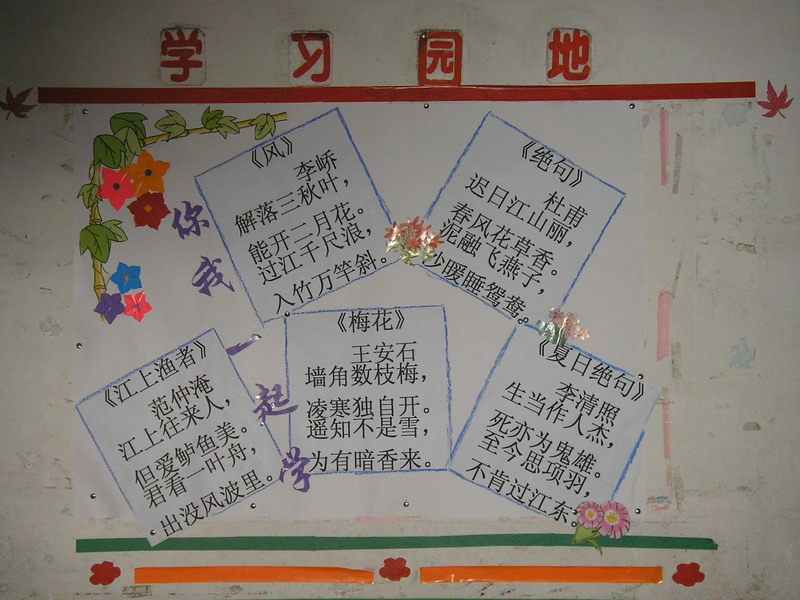 学习园地
你我一起学
《风》
李峤
解落三秋叶，
能开二月花。
过江千尺浪，
入竹万竿斜。
《绝句》
杜甫
迟日江山丽，
春风花草香。
泥融飞燕子，
沙暖睡鸳鸯。
《江上渔者》
范仲淹
江上往来人，
但爱鲈鱼美。
君看一叶舟，
出没风波里。
《梅花》
王安石
墙角数枝梅，
凌寒独自开。
遥知不是雪，
为有暗香来。
《夏日绝句》
李清照
生当作人杰，
死亦为鬼雄。
至今思项羽，
不肯过江东。